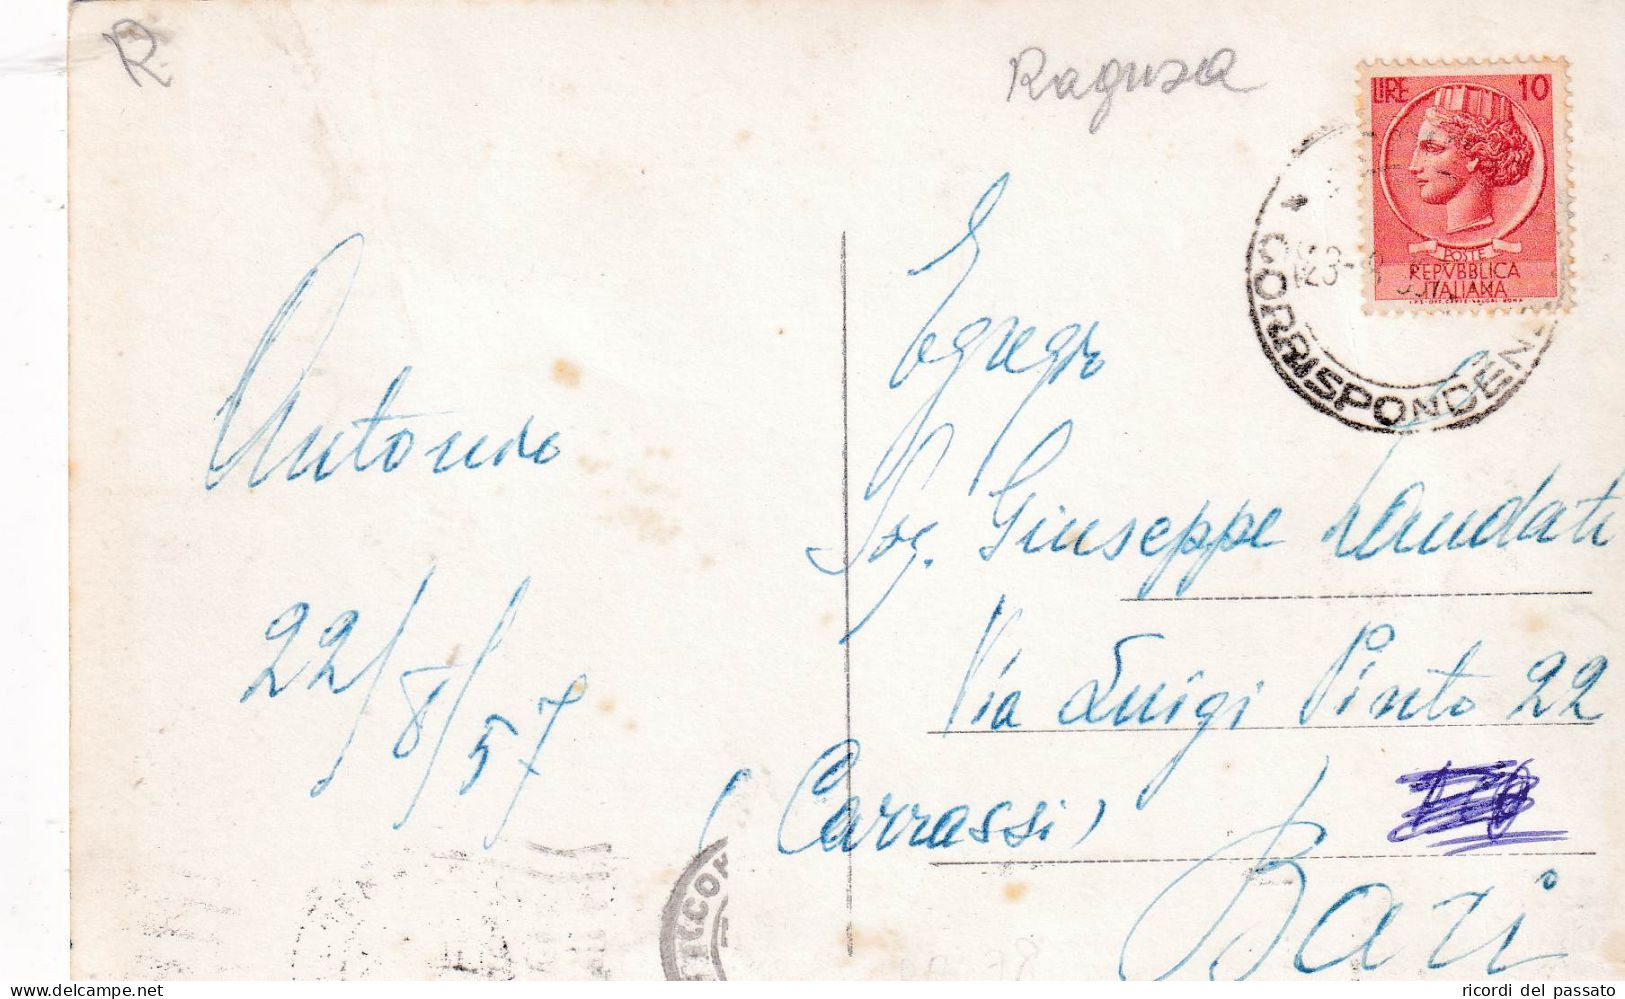 R
Ragusa
LIRE 10
POSTE
REPVBBLICA
ITALIANA
CORRISPONDEN
23-
Egregio
Sig. Giuseppe Laudati
Via Luigi Pinto 22
(Carrassi)
Bari
Antonio
22/8/57
ricordi del passato
delcampe.net